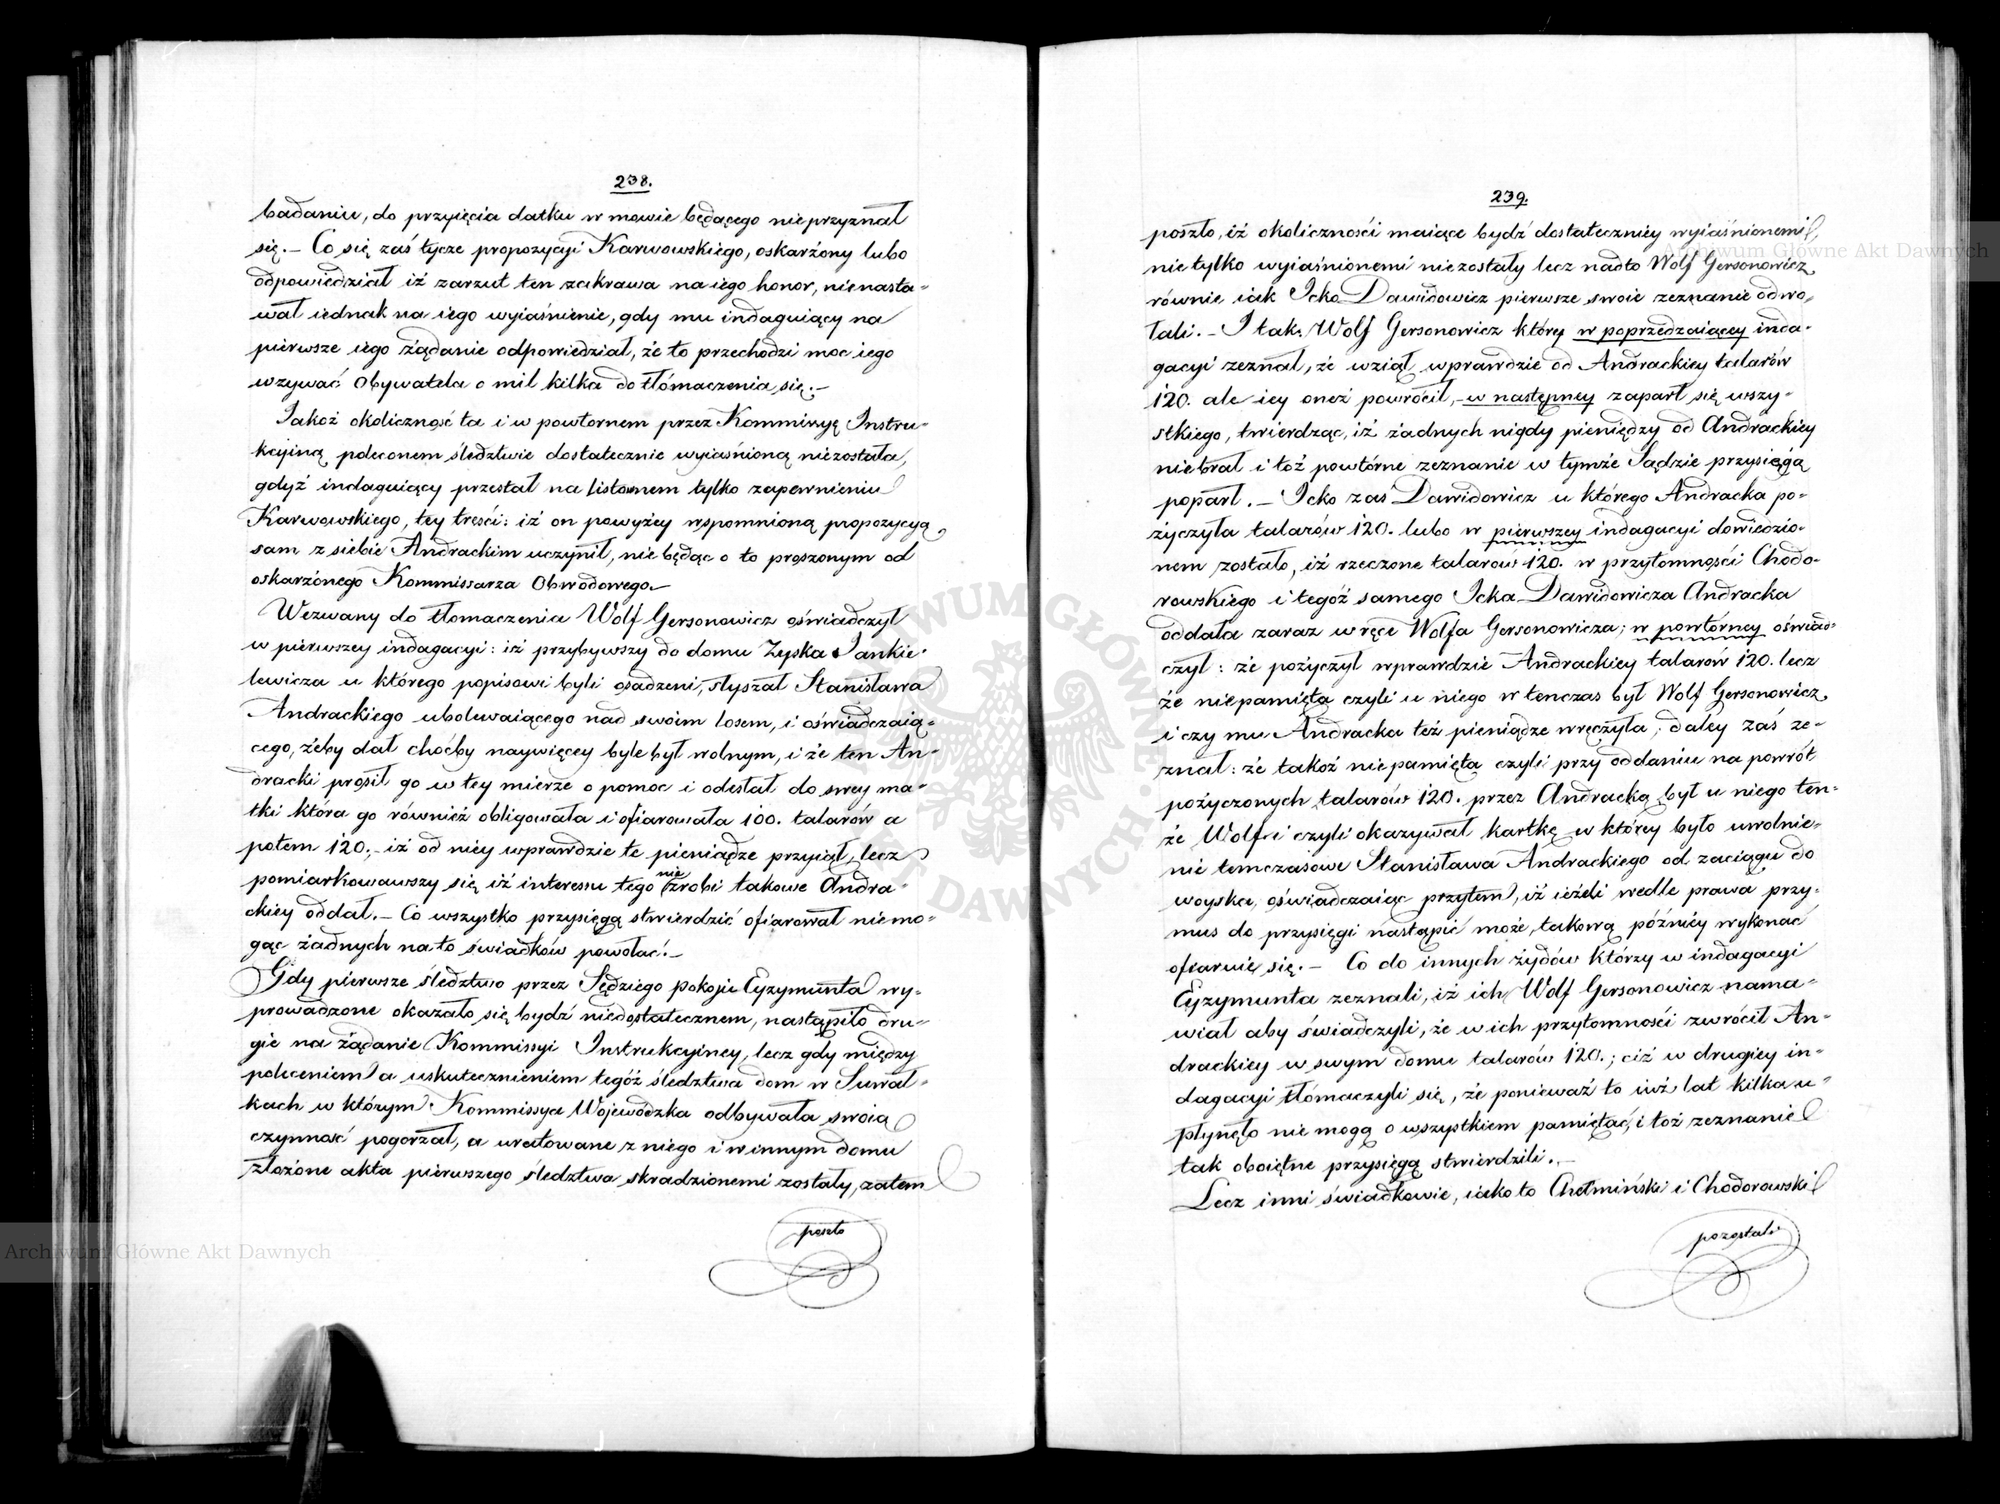 238.
badaniu, do przyięcia datku w mowie będącego nieprzyznał
się.— Co się zaś tycze propozycyi Karwowskiego, oskarżony lubo
odpowiedział iż zarzut ten zakrawa na iego honor, nienasta-
wał iednak na iego wyiaśnienie, gdy mu indaguiący na
pierwsze iego żądanie odpowiedział, że to przechodzi moc iego
wzywać Obywatela o mil kilka do tłómaczenia się.—
Iakoż okoliczność ta i w powtornem przez Kommissyę Instru-
kcyiną poleconem śledztwie dostatecznie wyiaśnioną niezostała,
gdyż indaguiący przestał na listownem tylko zapewnieniu
Karwowskiego, tey treści: iż on powyżey wspomnioną propozycyą
sam z siebie Andrackim uczynił, nie będąc o to proszonym od
oskarżonego Kommissarza Obwodowego.—
Wezwany do tłomaczenia Wolf Gersonowicz oświadczył
w pierwszey indagacyi: iż przybywszy do domu Zyska Iankie-
lewicza u którego popisowi byli osadzeni, słyszał Stanisława
Andrackiego ubolewaiącego nad swoim losem, i oświadczaią-
cego, żeby dał choćby naywięcey byle był wolnym, i że ten An-
dracki prosił go w tey mierze o pomoc i odesłał do swey ma-
tki która go również obligowała i ofiarowała 100. talarów a
potem 120.,— iż od niey wprawdzie te pieniądze przyiął, lecz
pomiarkowawszy się iż interessu tego nie zrobi takowe Andra-
ckiey oddał.— Co wszystko przysięgą stwierdzić ofiarował niemo-
gąc żadnych na to świadków powołać.—
Gdy pierwsze śledztwo przez Sędziego pokoju Eyzymunta wy-
prowadzone okazało się bydź niedostatecznem, nastąpiło dru-
gie na żądanie Kommissyi Instrukcyiney, lecz gdy między
poleceniem a uskutecznieniem tegóż śledztwa dom w Suwał-
kach w którym Kommissya Wojewódzka odbywała swoią
czynność pogorzał, a uratowane z niego i w innym domu
złożone akta pierwszego śledztwa skradzionemi zostały, zatem
poszło
239.
poszło, iż okoliczności maiące bydź dostateczniey wyiaśnionemi,
nie tylko wyiaśnionemi niezostały lecz nadto Wolf Gersonowicz
równie iak Icko Dawidowicz pierwsze swoie zeznanie odwo-
łali.— I tak: Wolf Gersonowicz który w poprzedzaiącey inda-
gacyi zeznał, że wziął wprawdzie od Andrackiey talarów
120. ale iey oneż powrócił,— w następney zaparł się wszy-
stkiego, twierdząc, iż żadnych nigdy pieniędzy od Andrackiey
nie brał i toż powtórne zeznanie w tymże Sądzie przysięgą
poparł.— Icko zaś Dawidowicz u którego Andracka po-
życzyła talarów 120. lubo w pierwszey indagacyi dowiedzio-
nem zostało, iż rzeczone talarów 120. w przytomności Chodo-
rowskiego i tegóż samego Icka Dawidowicza Andracka
oddała zaraz w ręce Wolfa Gersonowicza; w powtórney oświad-
czył: że pożyczył wprawdzie Andrackiey talarów 120. lecz
że niepamięta czyli u niego w tenczas był Wolf Gersonowicz
i czy mu Andracka też pieniądze wręczyła; daley zaś ze-
znał: że takoż niepamięta czyli przy oddaniu na powrót
pożyczonych talarów 120. przez Andracką był u niego ten-
że Wolf i czyli okazywał kartkę w którey było uwolnie-
nie tymczasowe Stanisława Andrackiego od zaciągu do
woyska, oświadczaiąc przytem, iż ieżeli wedle prawa przy-
mus do przysięgi nastąpić może, takową późniey wykonać
ofiaruie się.— Co do innych żydów którzy w indagacyi
Eyzymunta zeznali, iż ich Wolf Gersonowicz nama-
wiał aby świadczyli, że w ich przytomności zwrócił An-
drackiey w swym domu talarów 120.; ciż w drugiey in-
dagacyi tłómaczyli się, że ponieważ to iuż lat kilka u-
płynęło nie mogą o wszystkiem pamiętać, i toż zeznanie
tak oboiętne przysięgą stwierdzili.—
Lecz inni świadkowie, iako to Chełmiński i Chodorowski
pozostali
Archiwum Główne Akt Dawnych
Archiwum Główne Akt Dawnych